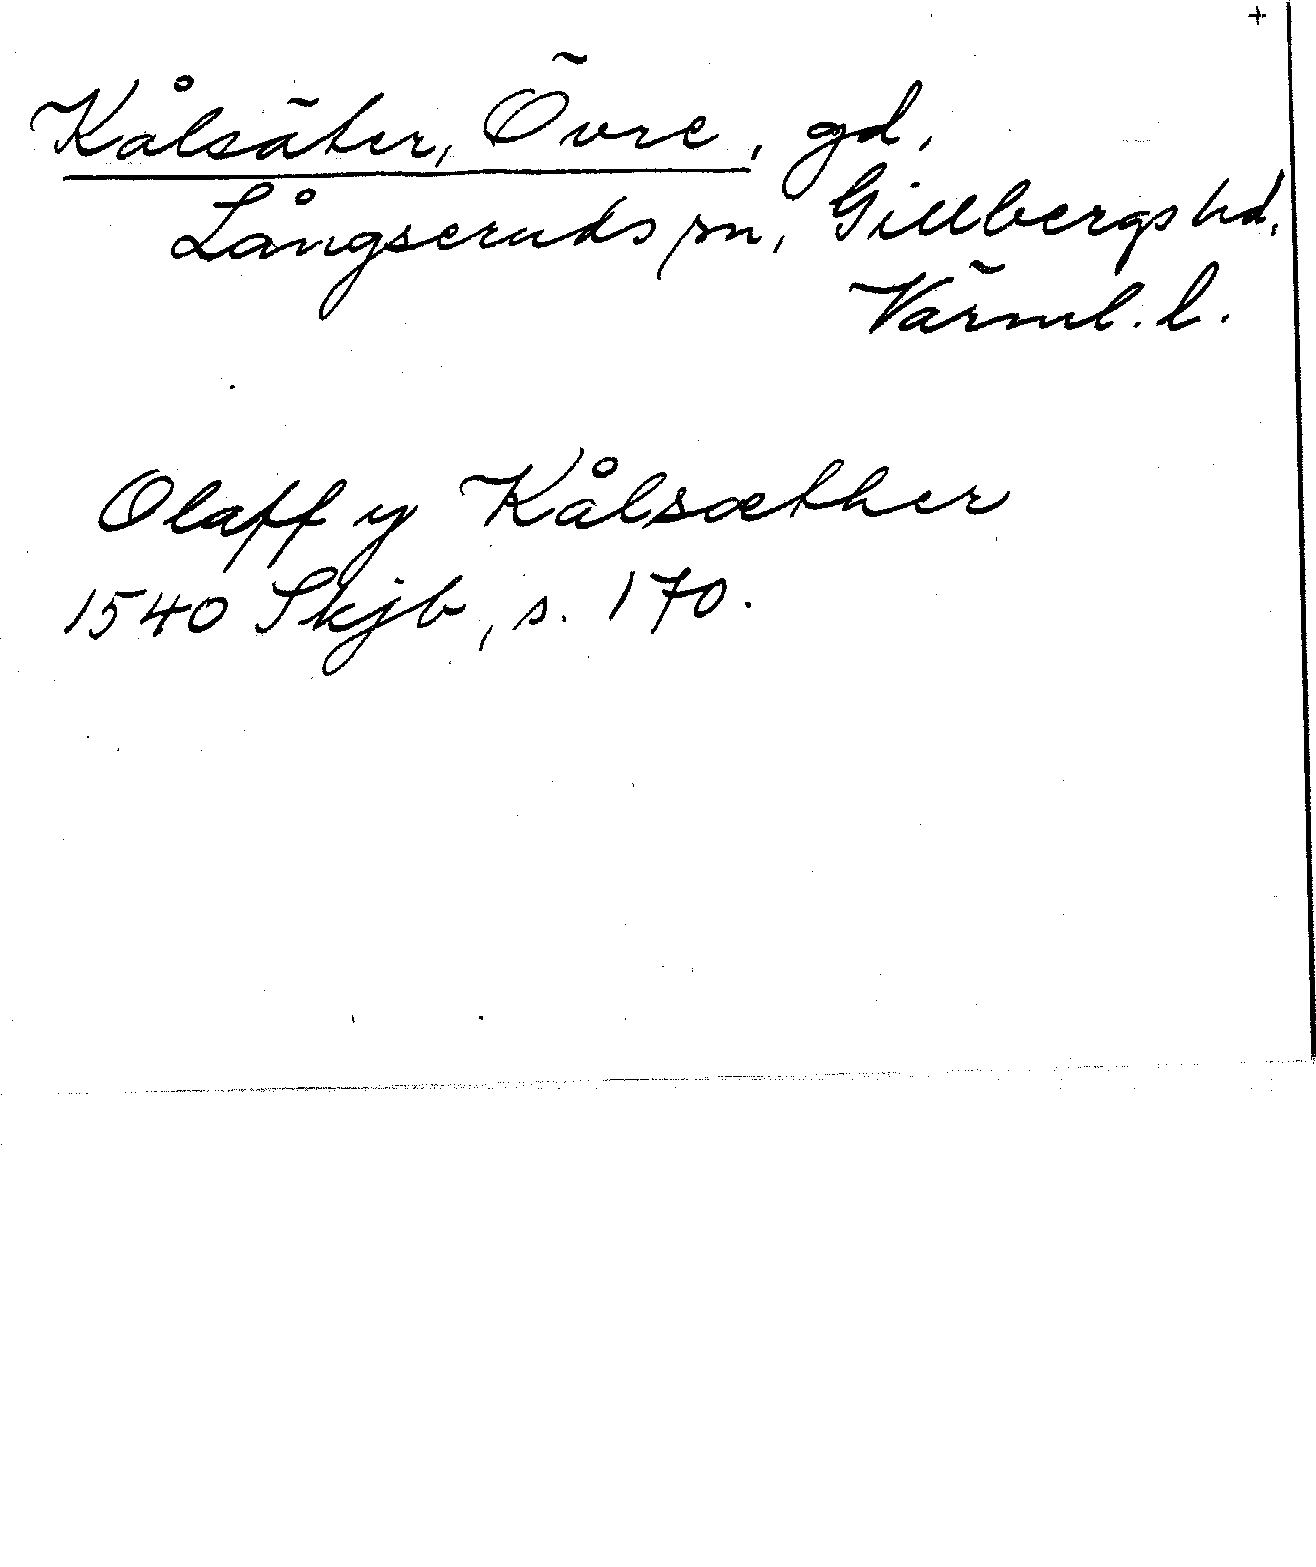 +
Kålsäter, Övre, gd,
Långseruds sn, Gillbergs hd,
Värml. l.
Olaff y Kålsæther
1540 Skjb, s. 170.